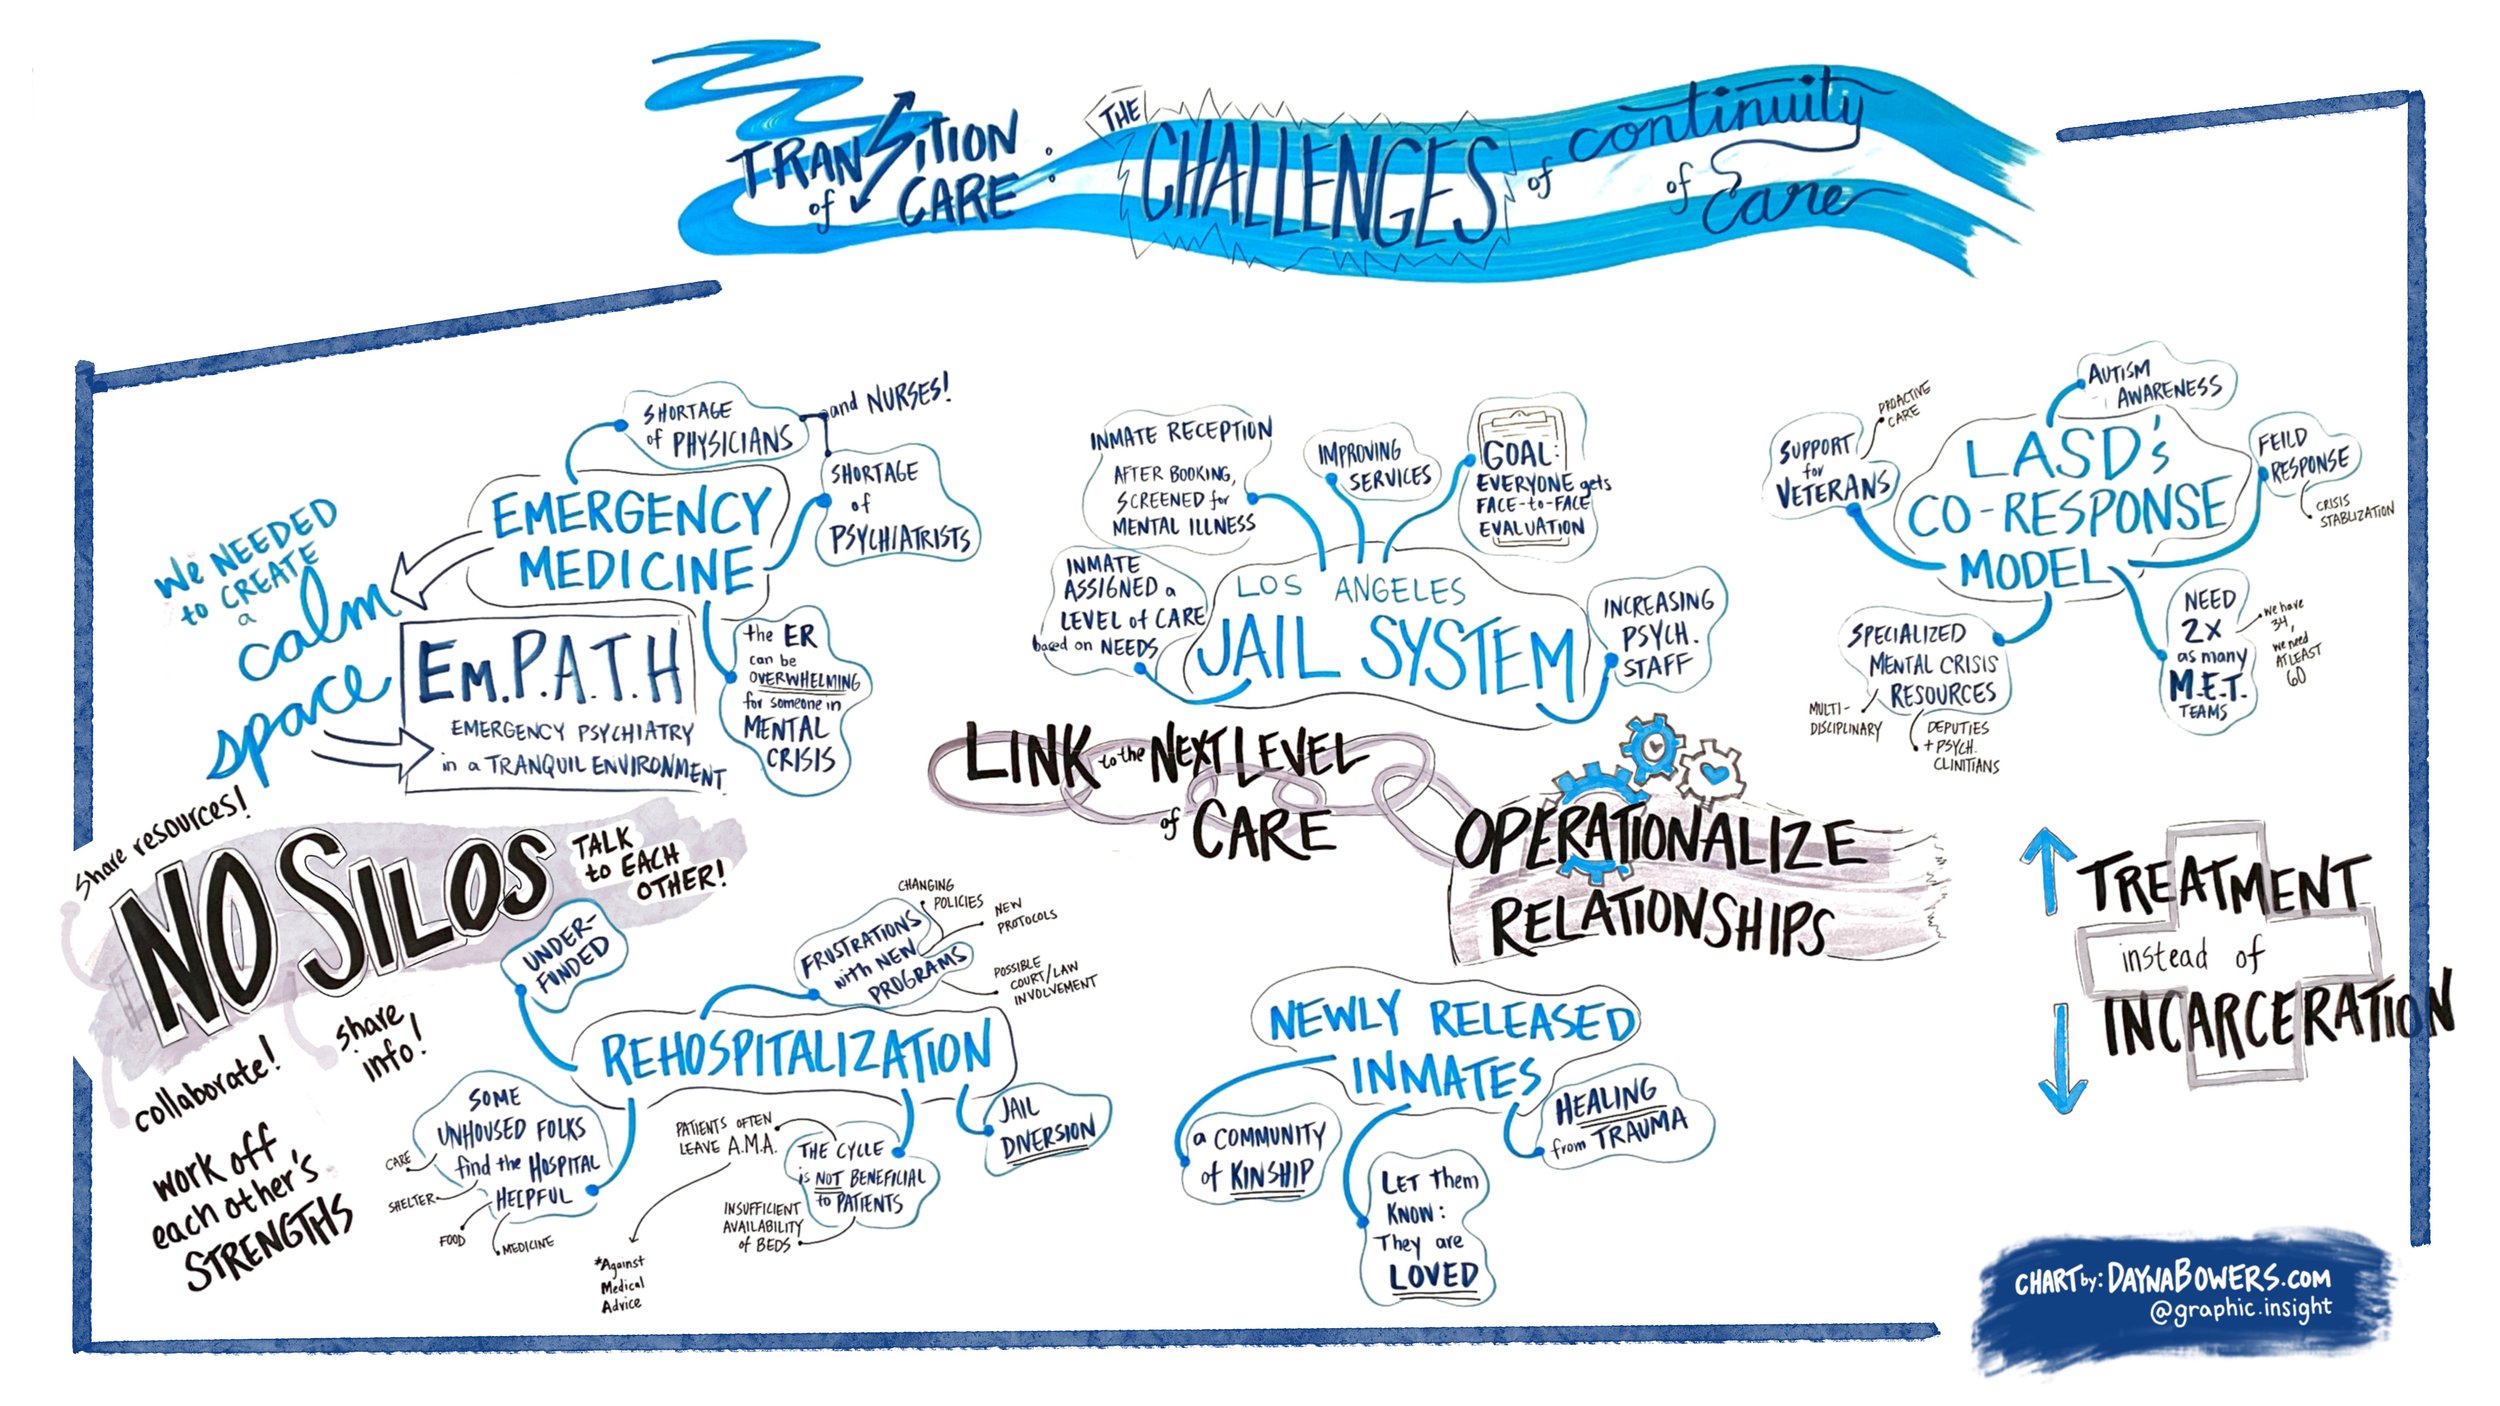 TRANSITION
of CARE:
THE
CHALLENGES
of continuity
of care
SHORTAGE
of PHYSICIANS
and NURSES!
SHORTAGE
of
PSYCHIATRISTS
EMERGENCY
MEDICINE
WE NEEDED
to CREATE
a
calm
space
EM.P.A.T.H
EMERGENCY PSYCHIATRY
in a TRANQUIL ENVIRONMENT
the ER
can be
OVERWHELMING
for someone in
MENTAL
CRISIS
INMATE RECEPTION
AFTER BOOKING,
SCREENED for
MENTAL ILLNESS
IMPROVING
SERVICES
GOAL:
EVERYONE gets
FACE-to-FACE
EVALUATION
INMATE
ASSIGNED a
LEVEL of CARE
based on NEEDS
LOS ANGELES
JAIL SYSTEM
INCREASING
PSYCH.
STAFF
AUTISM
AWARENESS
PROACTIVE
CARE
SUPPORT
for
VETERANS
LASD's
CO-RESPONSE
MODEL
FEILD
RESPONSE
CRISIS
STABLIZATION
SPECIALIZED
MENTAL CRISIS
RESOURCES
MULTI-
DISCIPLINARY
DEPUTIES
+ PSYCH.
CLINITIANS
NEED
2X
as many
M.E.T.
TEAMS
we have
34,
we need
AT LEAST
60
LINK to the NEXT LEVEL
of CARE
OPERATIONALIZE
RELATIONSHIPS
share resources!
NO SILOS
TALK
to EACH
OTHER!
share
info!
collaborate!
work off
each other's
STRENGTHS
UNDER-
FUNDED
FRUSTRATIONS
with NEW
PROGRAMS
CHANGING
POLICIES
NEW
PROTOCOLS
POSSIBLE
COURT/LAW
INVOLVEMENT
REHOSPITALIZATION
SOME
UNHOUSED FOLKS
find the HOSPITAL
HELPFUL
CARE
SHELTER
FOOD
MEDICINE
PATIENTS OFTEN
LEAVE A.M.A.
*Against
Medical
Advice
THE CYCLE
is NOT BENEFICIAL
to PATIENTS
INSUFFICIENT
AVAILABILITY
of BEDS
JAIL
DIVERSION
NEWLY RELEASED
INMATES
a COMMUNITY
of KINSHIP
LET them
KNOW:
They are
LOVED
HEALING
from TRAUMA
TREATMENT
instead of
INCARCERATION
CHART by: DAYNABOWERS.COM
@graphic.insight